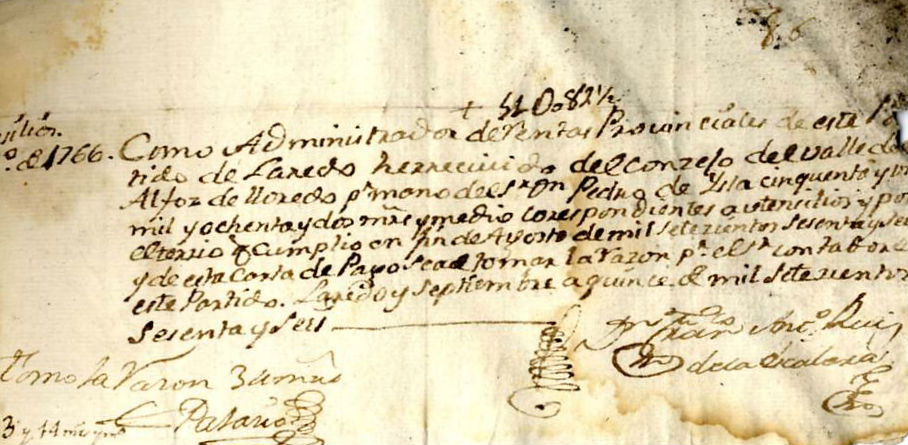 86
+ 51 Do82½
º de 1766. Como Administrador de Rentas Provinciales de este Par
tido de Laredo he recivido del Conzejo del Valle de
Alfoz de lloredo pr mano del Sr Dn Pedro de Ysla cinquenta y un
mil y ochenta y dos mrs y medio correspondientes a utensilios y por
el terzio q cumplio en fin de Agosto de mil setezientos sesenta y seis
y de esta Carta de Pago se a de tomar la razon pr el Sr contador de
este Partido. Laredo y Septiembre a quince de mil setezientos
sesenta y seis
Juan Anto Ruiz
de la Escalera
Tomo la Razon
Palacio